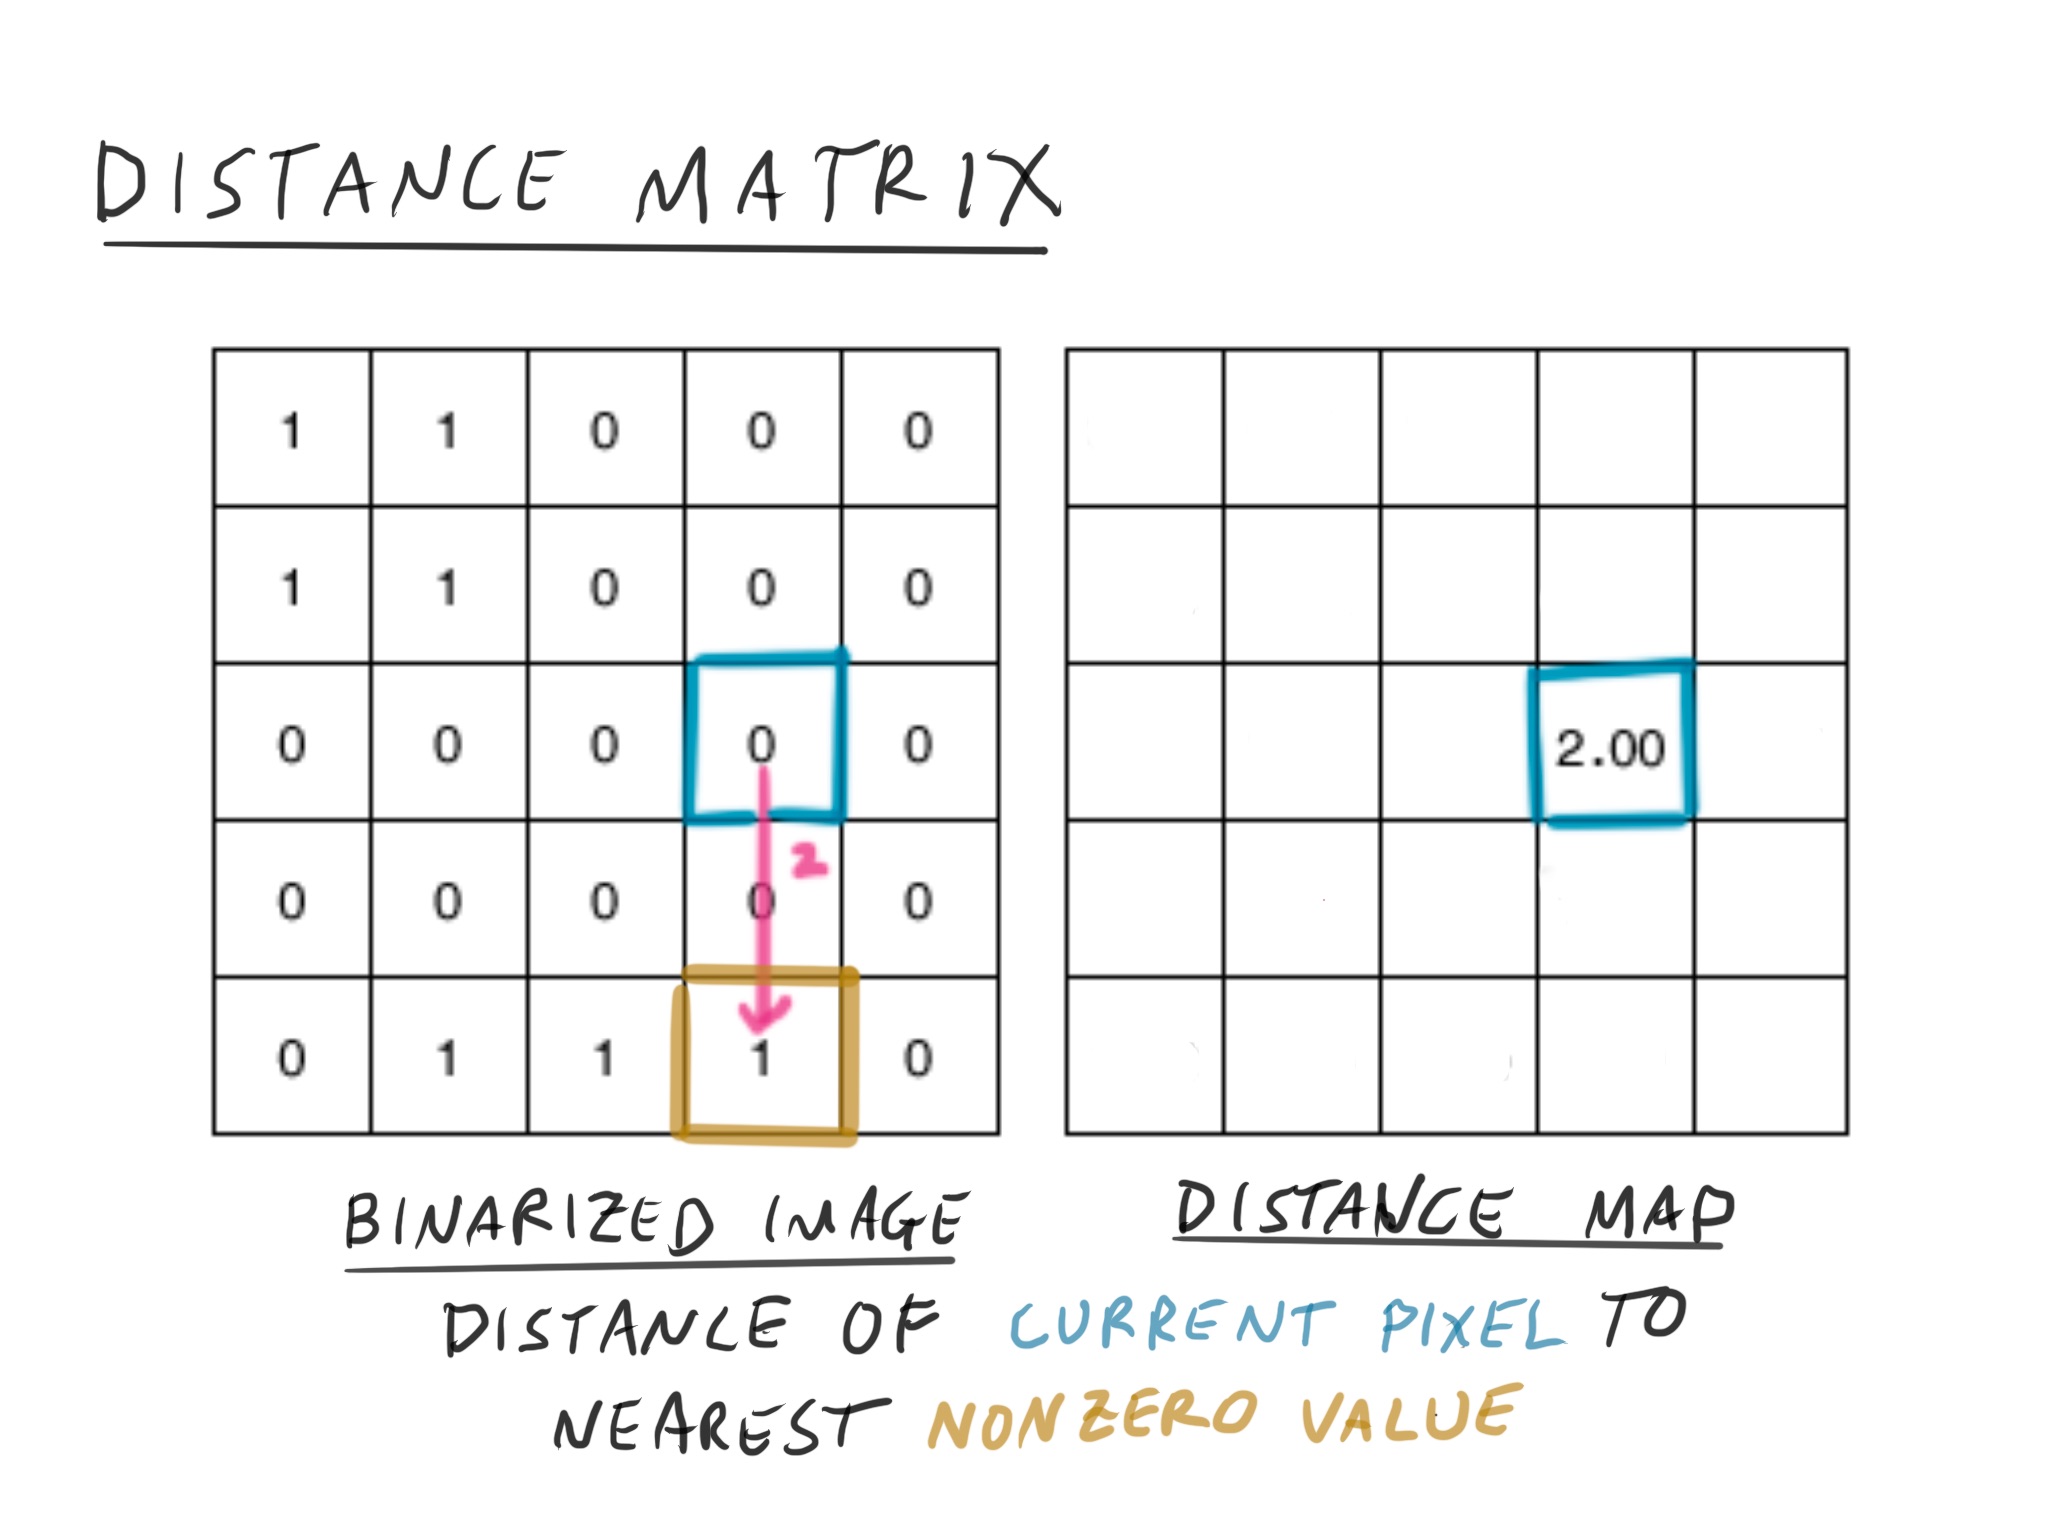 DISTANCE MATRIX
1 1 0 0 0
1 1 0 0 0
0 0 0 0 0
2.00
2
0 0 0 0 0
0 1 1 1 0
BINARIZED IMAGE
DISTANCE MAP
DISTANCE OF CURRENT PIXEL TO
NEAREST NONZERO VALUE